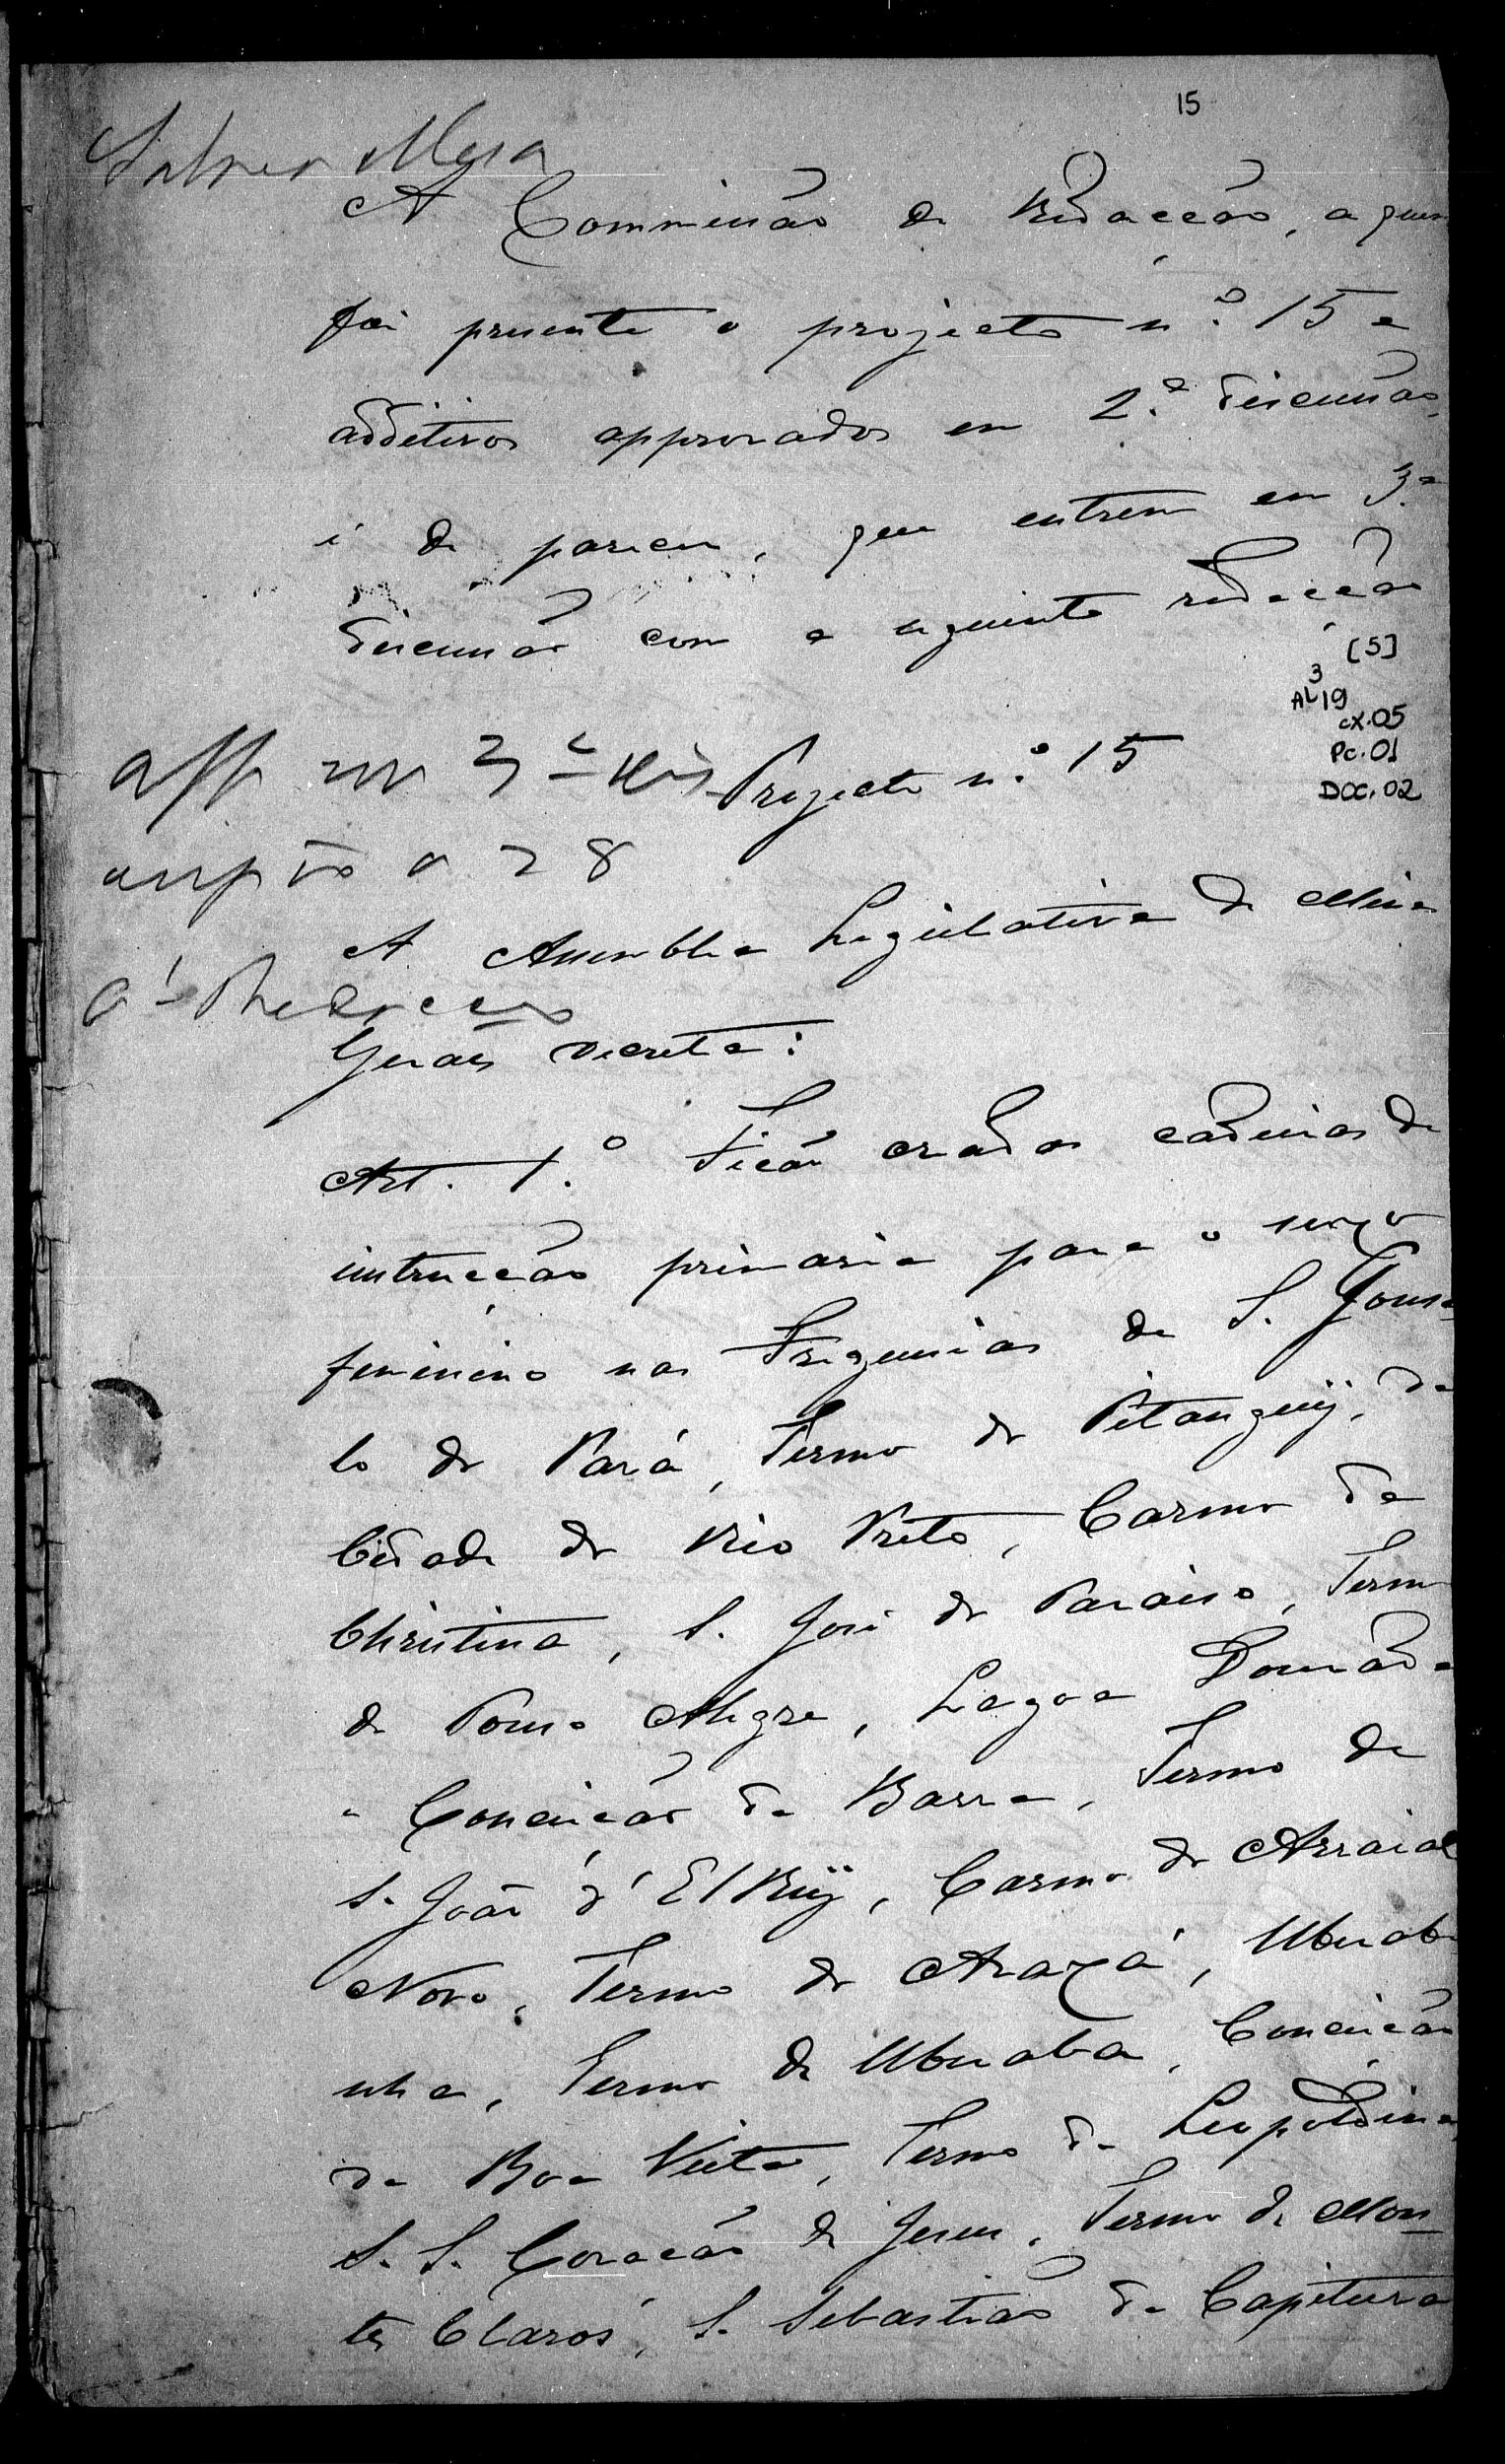 15
Sobre a Mesa
A Commissão de Redacção, a quem
foi presente o projecto n.º 15 e
additivos approvados em 2.ª discussão,
é de parecer, que entrem em 3.ª
discussão com a seguinte redacção
[5]
3
AL 19
CX.05
Pc.01
DOC.02
Projecto n.º 15
app em 3ª
a 28
A Assemblea Legislativa de Minas
á Redacção
Geraes decreta:
Art. 1.º Ficão creadas cadeiras de
instrucção primaria para o sexo
feminino nas Freguesias de S. Gonsa-
lo do Pará, Termo do Pitanguÿ, da
Cidade do Rio Preto, Carmo da
Christina, S. José do Paraiso, Termo
de Pouso Alegre, Lagoa Dourada
e Conceição da Barra, Termo de
S. João d'El Reÿ, Carmo do Arraial
Novo, Termo do Araxá, Uberabi-
nha, Termo de Uberaba, Conceição
da Boa Vista, Termo da Leopoldina,
S. S. Coração de Jesus, Termo de Mon-
tes Claros, S. Sebastião da Capitura